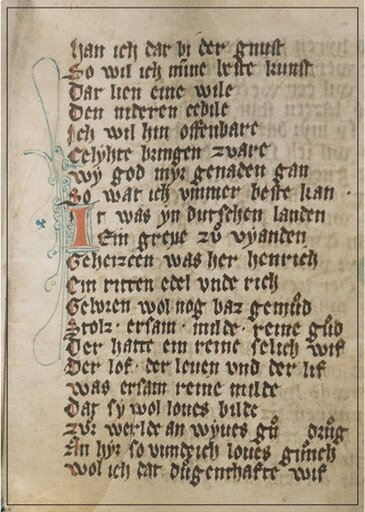 han ich dar bi der gnust
So wil ich mine beste kunst
Dar lien eine wile
Den nideren ce bile
Ich wil hin offenbare
Celyhte bringen zvare
Wy god myr genaden gan
So war ich vmmer beste kan .
It was yn dutschen landen
Ein greue zů vyanden
Geheizcen was her henrich
Ein ritter edel vnde rich
Geboren wol nog baz gemůd
Stolz · ersam · milde · reine gůd
Der hatte ein reine selich wif
Der lof · der leuen vnd der lif
was ersam reine milde
Dat sy wol loues bilde
zůr werlde an wyues gů drůg
An hyr so vindich loues gůnch
wol ich dat důgenthafte wif